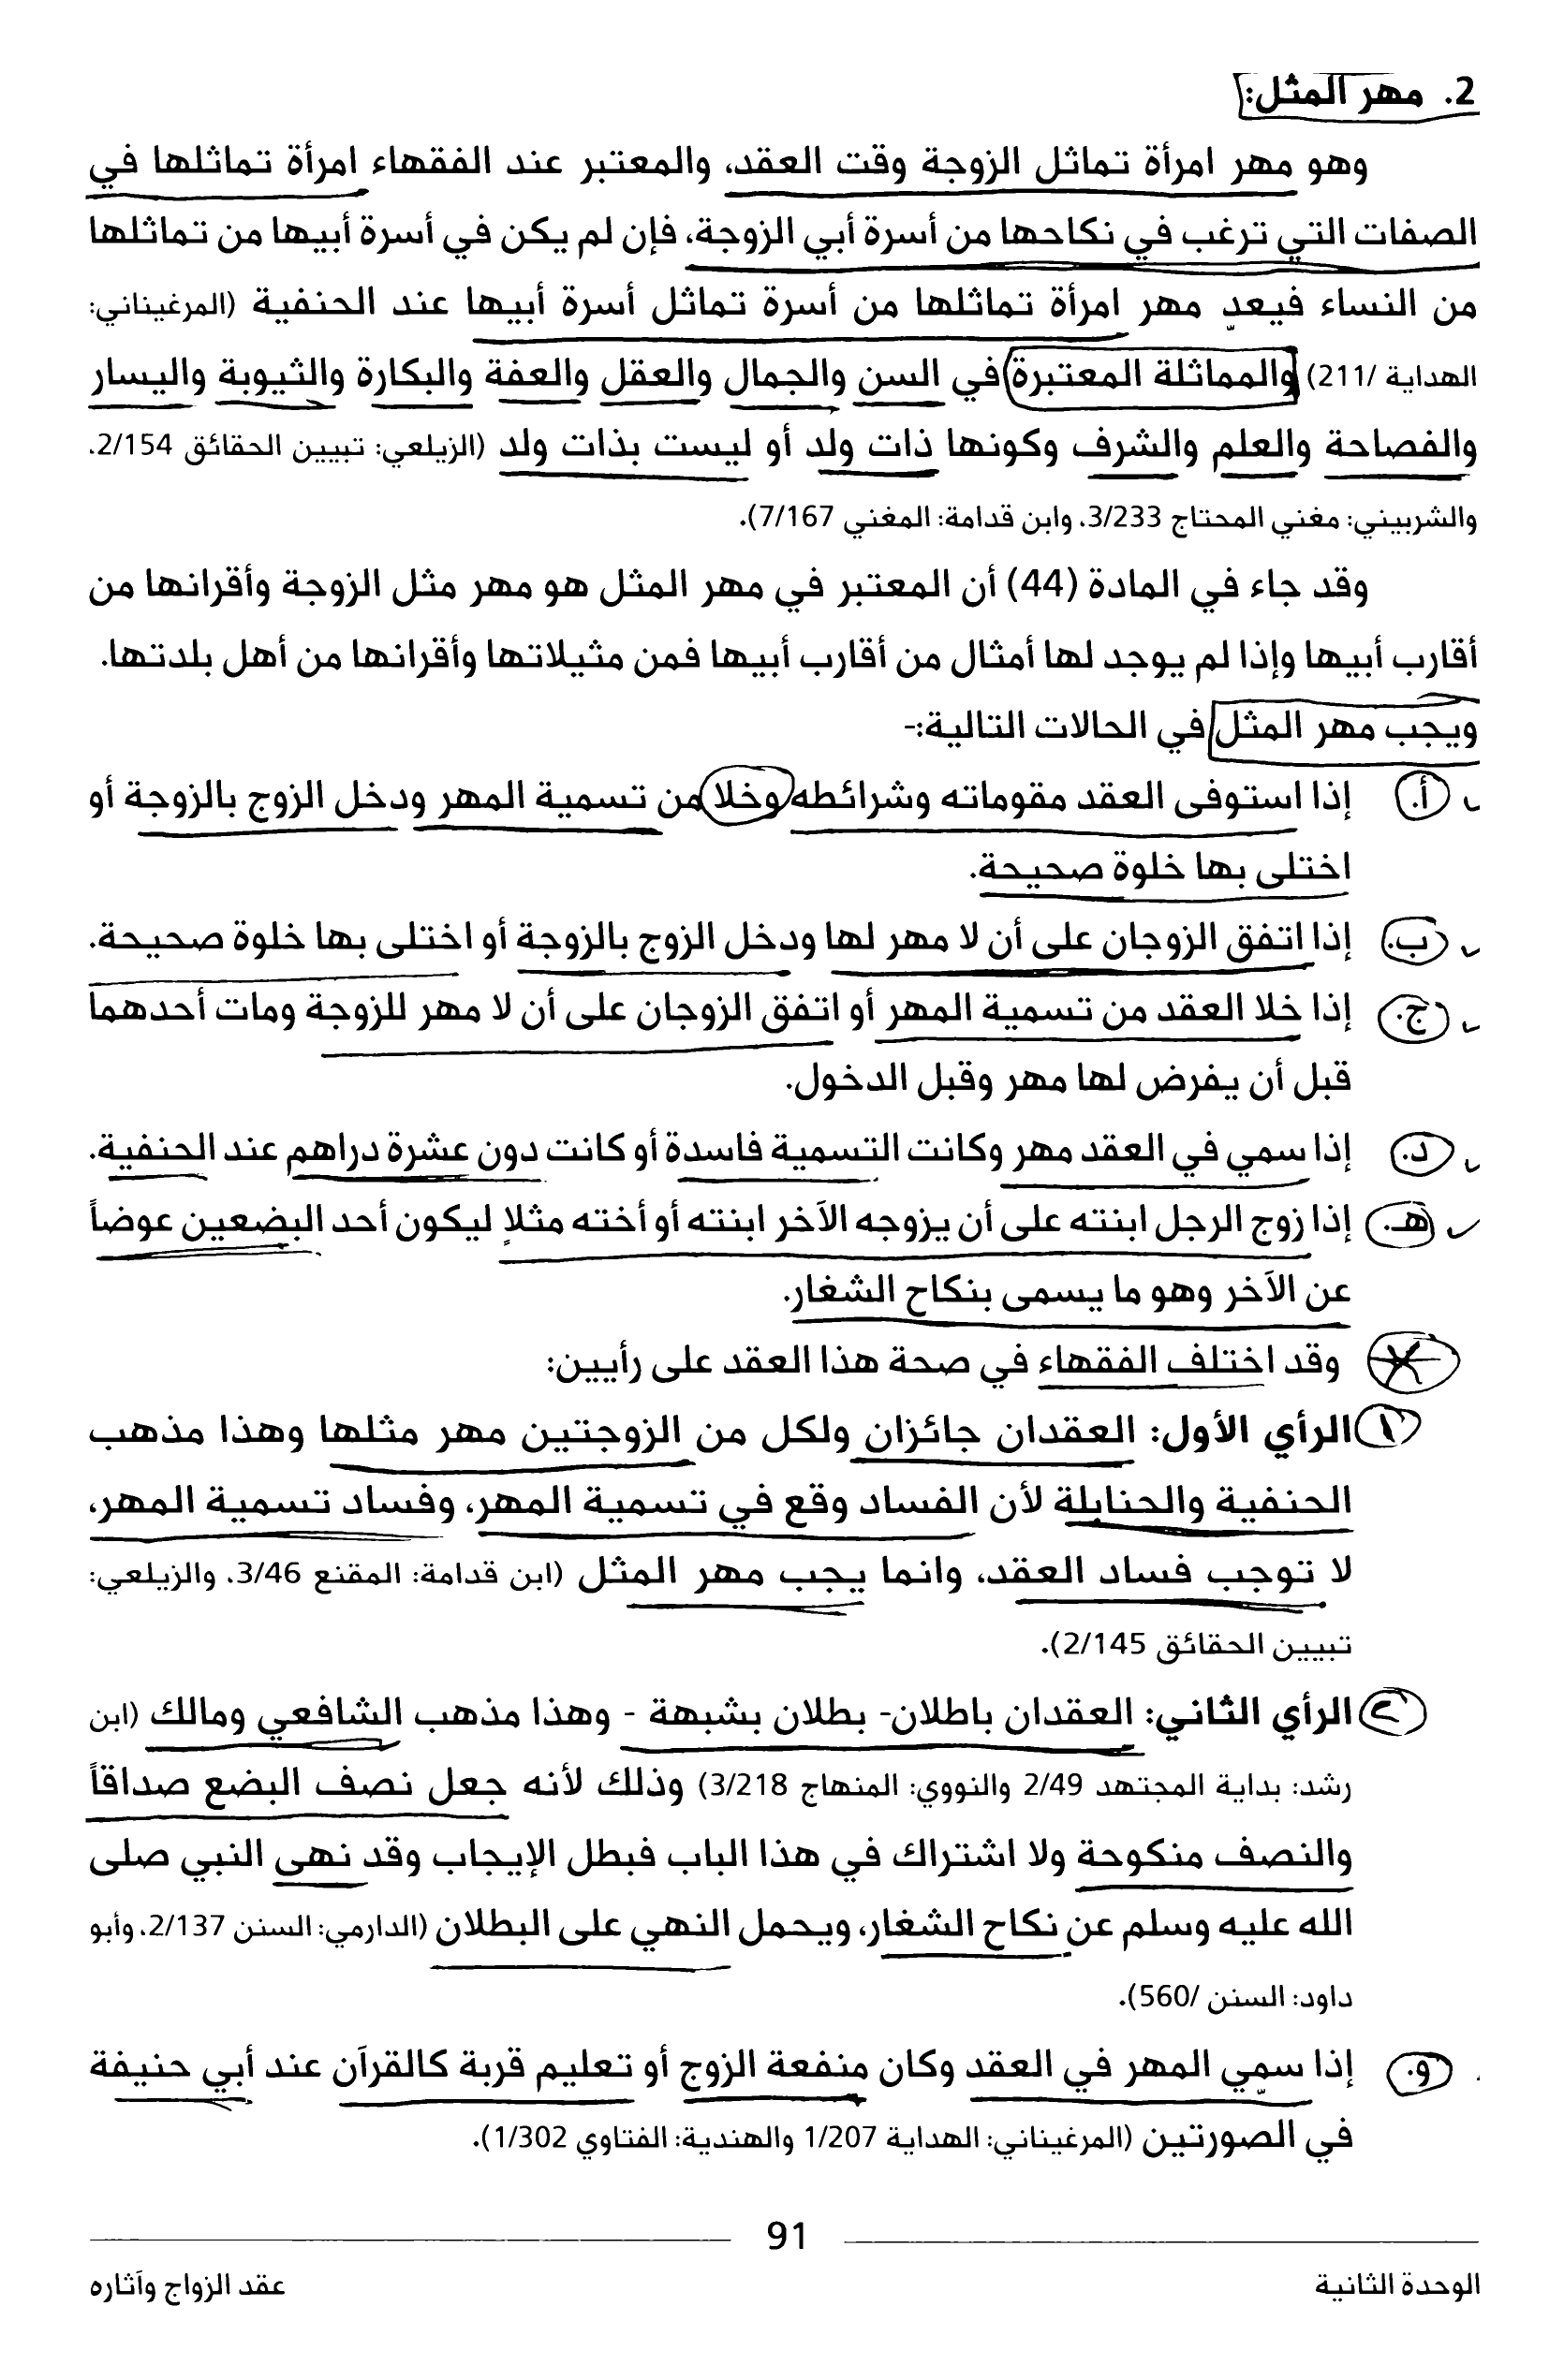 2. مهر المثل:
وهو مهر امرأة تماثل الزوجة وقت العقد، والمعتبر عند الفقهاء امرأة تماثلها في
الصفات التي ترغب في نكاحها من أسرة أبي الزوجة، فإن لم يكن في أسرة أبيها من تماثلها
من النساء فيعدّ مهر امرأة تماثلها من أسرة تماثل أسرة أبيها عند الحنفية (المرغيناني:
الهداية /211) والمماثلة المعتبرة في السن والجمال والعقل والعفة والبكارة والثيوبة واليسار
والفصاحة والعلم والشرف وكونها ذات ولد أو ليست بذات ولد (الزيلعي: تبيين الحقائق 2/154،
والشربيني: مغني المحتاج 3/233، وابن قدامة: المغني 7/167).
وقد جاء في المادة (44) أن المعتبر في مهر المثل هو مهر مثل الزوجة وأقرانها من
أقارب أبيها وإذا لم يوجد لها أمثال من أقارب أبيها فمن مثيلاتها وأقرانها من أهل بلدتها.
ويجب مهر المثل في الحالات التالية:-
أ. إذا استوفى العقد مقوماته وشرائطه وخلا من تسمية المهر ودخل الزوج بالزوجة أو
اختلى بها خلوة صحيحة.
ب. إذا اتفق الزوجان على أن لا مهر لها ودخل الزوج بالزوجة أو اختلى بها خلوة صحيحة.
ج. إذا خلا العقد من تسمية المهر أو اتفق الزوجان على أن لا مهر للزوجة ومات أحدهما
قبل أن يفرض لها مهر وقبل الدخول.
د. إذا سمي في العقد مهر وكانت التسمية فاسدة أو كانت دون عشرة دراهم عند الحنفية.
هـ. إذا زوج الرجل ابنته على أن يزوجه الآخر ابنته أو أخته مثلاً ليكون أحد البضعين عوضاً
عن الآخر وهو ما يسمى بنكاح الشغار.
وقد اختلف الفقهاء في صحة هذا العقد على رأيين:
١ الرأي الأول: العقدان جائزان ولكل من الزوجتين مهر مثلها وهذا مذهب
الحنفية والحنابلة لأن الفساد وقع في تسمية المهر، وفساد تسمية المهر،
لا توجب فساد العقد، وانما يجب مهر المثل (ابن قدامة: المقنع 3/46، والزيلعي:
تبيين الحقائق 2/145).
٢ الرأي الثاني: العقدان باطلان- بطلان بشبهة - وهذا مذهب الشافعي ومالك (ابن
رشد: بداية المجتهد 2/49 والنووي: المنهاج 3/218) وذلك لأنه جعل نصف البضع صداقاً
والنصف منكوحة ولا اشتراك في هذا الباب فبطل الإيجاب وقد نهى النبي صلى
الله عليه وسلم عن نكاح الشغار، ويحمل النهي على البطلان (الدارمي: السنن 2/137، وأبو
داود: السنن /560).
و. إذا سمّي المهر في العقد وكان منفعة الزوج أو تعليم قربة كالقرآن عند أبي حنيفة
في الصورتين (المرغيناني: الهداية 1/207 والهندية: الفتاوي 1/302).
91
الوحدة الثانية
عقد الزواج وآثاره